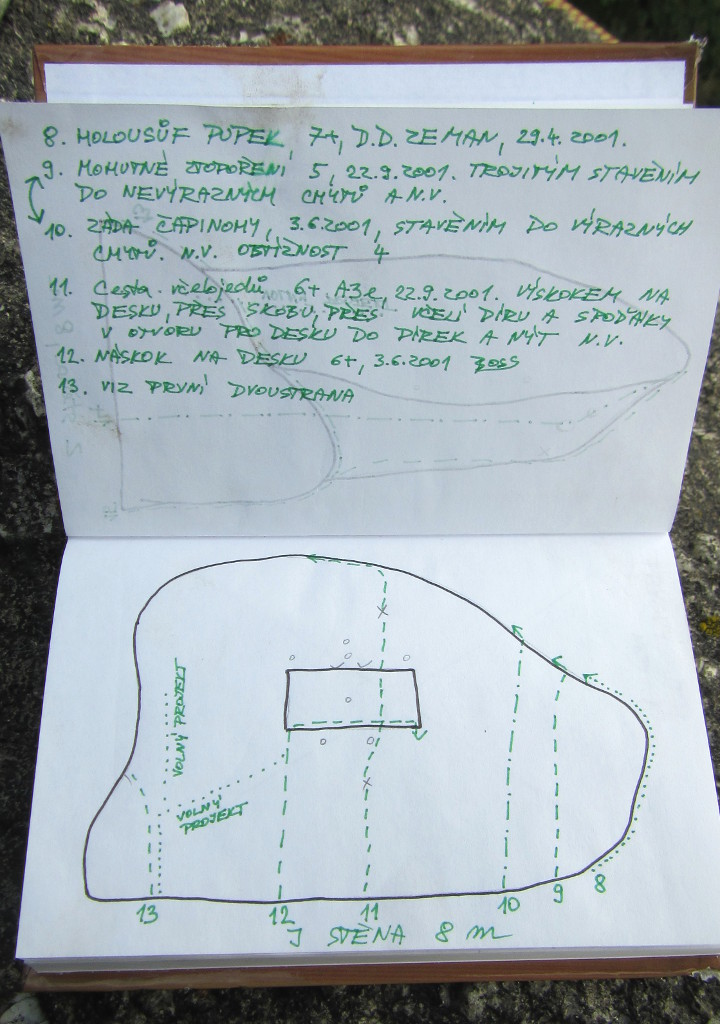 8. HOLOUSŮF PUPEK 7+, D.D. ZEMAN, 29.4.2001.
9. MOHUTNÉ ZTOPOŘENÍ 5, 22.9.2001. TROJITÝM STAVĚNÍM
DO NEVÝRAZNÝCH CHYTŮ A N.V.
10. ZÁDA ČAPINOHY, 3.6.2001, STAVĚNÍM DO VÝRAZNÝCH
CHYTŮ. N.V. OBTÍŽNOST 4
11. Cesta včelojedů 6+, A3e, 22.9.2001. VÝSKOKEM NA
DESKU, PŘES SKOBU, PŘES VČELÍ DÍRU A SPODŤÁKY
V OTVORU PRO DESKU DO DÍREK A NÝT N.V.
12. NÁSKOK NA DESKU 6+, 3.6.2001 BOSS
13. VIZ PRVNÍ DVOUSTRANA
VOLNÝ PROJEKT
VOLNÝ
PROJEKT
13 12 11 10 9 8
J STĚNA 8 m